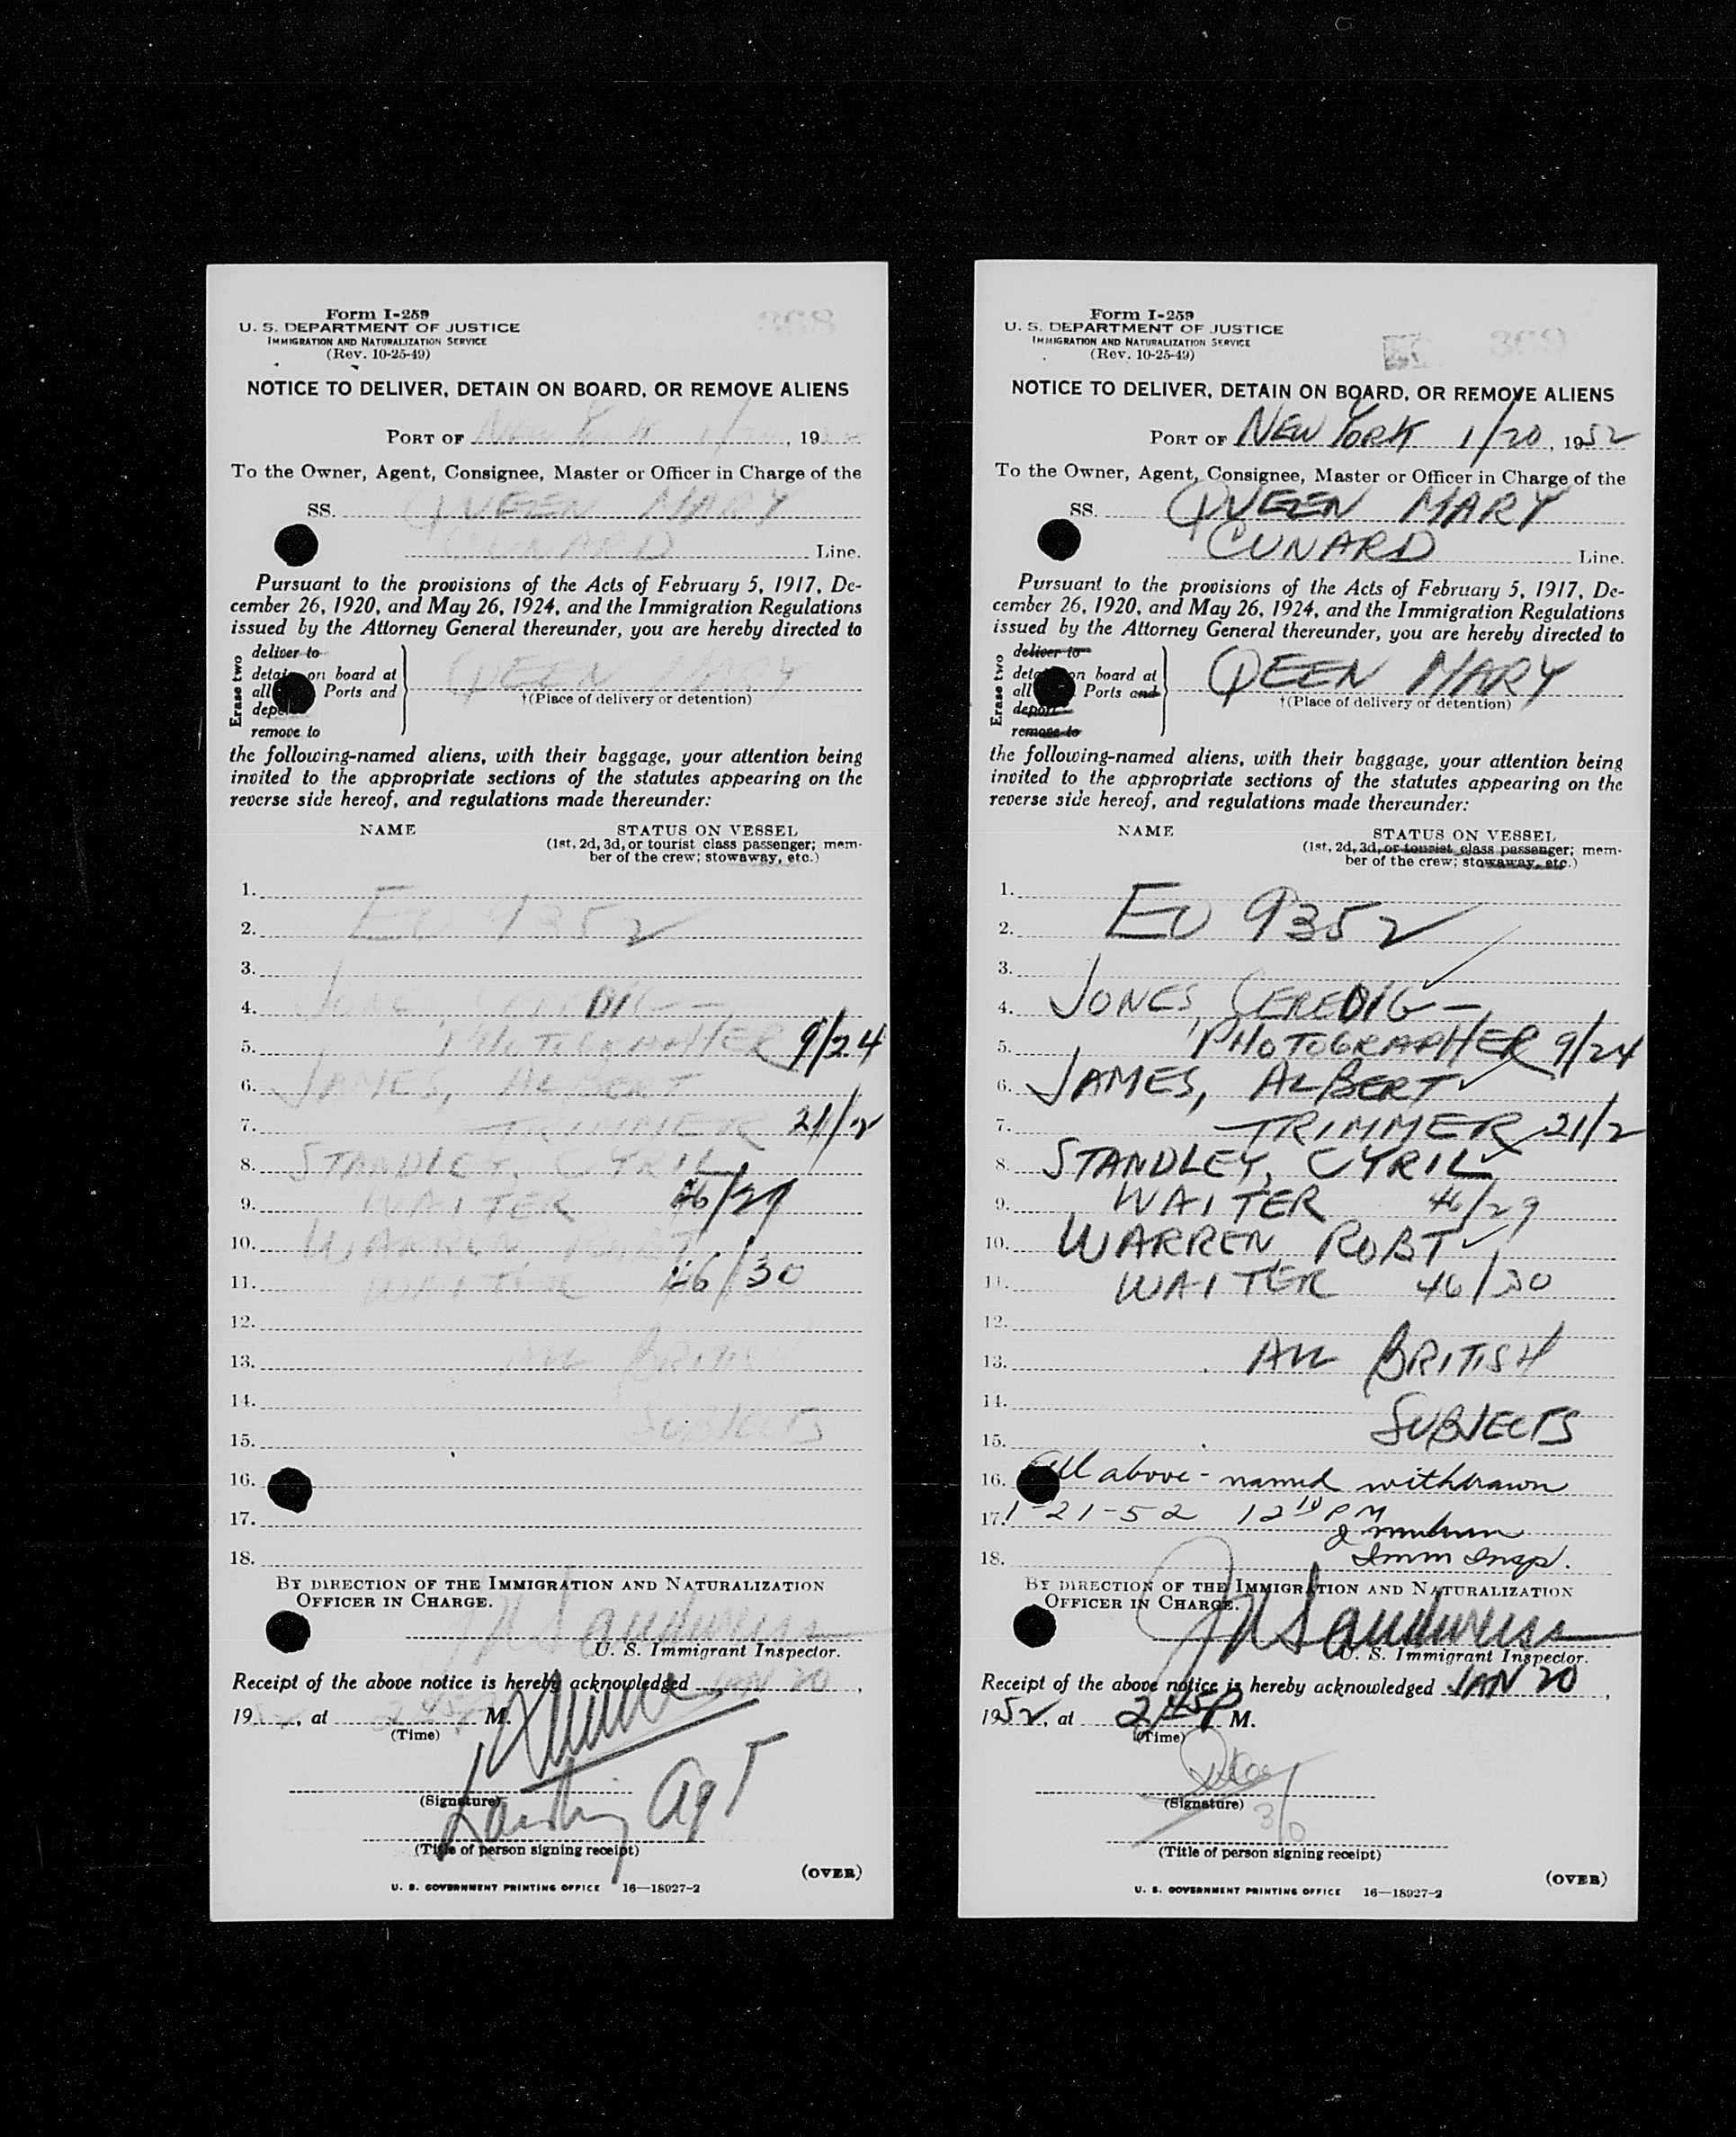 Form I-259
U. S. DEPARTMENT OF JUSTICE
IMMIGRATION AND NATURALIZATION SERVICE
(Rev. 10-25-49)
NOTICE TO DELIVER, DETAIN ON BOARD, OR REMOVE ALIENS
PORT OF New York 1/20, 1952
To the Owner, Agent, Consignee, Master or Officer in Charge of the
SS. QUEEN MARY
CUNARD Line.
Pursuant to the provisions of the Acts of February 5, 1917, De-
cember 26, 1920, and May 26, 1924, and the Immigration Regulations
issued by the Attorney General thereunder, you are hereby directed to
Erase two
deliver to
detain on board at
all Ports and
deport
remove to
QEEN MARY
†(Place of delivery or detention)
the following-named aliens, with their baggage, your attention being
invited to the appropriate sections of the statutes appearing on the
reverse side hereof, and regulations made thereunder:
NAME STATUS ON VESSEL
(1st, 2d, 3d, or tourist class passenger; mem-
ber of the crew; stowaway, etc.)
1.
2. EO 9352
3.
4. JONES, CEREDIG -
5. PHOTOGRAPHER 9/24
6. JAMES, ALBERT
7. TRIMMER 21/2
8. STANDLEY, CYRIL
9. WAITER 46/29
10. WARREN ROBT
11. WAITER 46/30
12.
13. ALL BRITISH
14.
15. SUBJECTS
16.
17.
18.
BY DIRECTION OF THE IMMIGRATION AND NATURALIZATION
OFFICER IN CHARGE.
U. S. Immigrant Inspector.
Receipt of the above notice is hereby acknowledged JAN 20,
1952, at 2 45 P M.
(Time)
(Signature)
Landing Agt
(Title of person signing receipt)
(OVER)
U. S. GOVERNMENT PRINTING OFFICE 16—18927-2
Form I-259
U. S. DEPARTMENT OF JUSTICE
IMMIGRATION AND NATURALIZATION SERVICE
(Rev. 10-25-49)
NOTICE TO DELIVER, DETAIN ON BOARD, OR REMOVE ALIENS
PORT OF NEW YORK 1/20, 1952
To the Owner, Agent, Consignee, Master or Officer in Charge of the
SS. QUEEN MARY
CUNARD Line.
Pursuant to the provisions of the Acts of February 5, 1917, De-
cember 26, 1920, and May 26, 1924, and the Immigration Regulations
issued by the Attorney General thereunder, you are hereby directed to
Erase two
deliver to
detain on board at
all Ports and
deport
remove to
QEEN MARY
†(Place of delivery or detention)
the following-named aliens, with their baggage, your attention being
invited to the appropriate sections of the statutes appearing on the
reverse side hereof, and regulations made thereunder:
NAME STATUS ON VESSEL
(1st, 2d, 3d, or tourist class passenger; mem-
ber of the crew; stowaway, etc.)
1.
2. EO 9352
3.
4. JONES, CEREDIG -
5. PHOTOGRAPHER 9/24
6. JAMES, ALBERT
7. TRIMMER 21/2
8. STANDLEY, CYRIL
9. WAITER 46/29
10. WARREN ROBT
11. WAITER 46/30
12.
13. ALL BRITISH
14.
15. SUBJECTS
16. All above-named withdrawn
17. 1-21-52 12 10 PM
18. Imm Insp.
BY DIRECTION OF THE IMMIGRATION AND NATURALIZATION
OFFICER IN CHARGE.
U. S. Immigrant Inspector.
Receipt of the above notice is hereby acknowledged JAN 20,
1952, at 2 45 P M.
(Time)
(Signature)
3/0
(Title of person signing receipt)
(OVER)
U. S. GOVERNMENT PRINTING OFFICE 16—18927-2